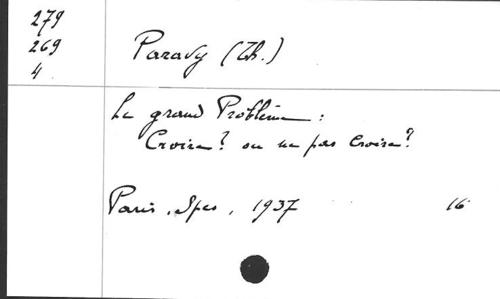 279
269
4
Paravy (Th.)
Le grand Problème :
Croire ? ou ne pas croire ?
Paris, Spes, 1937 16